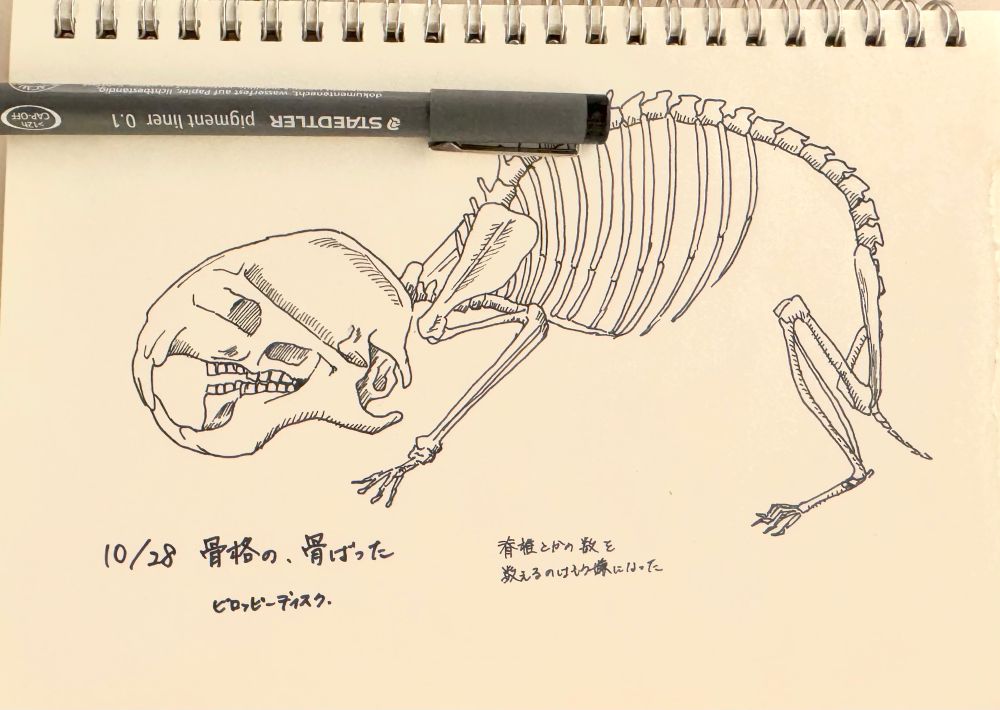 dokumentenecht, wasserfest auf Papier, lichtbeständig.
STAEDTLER pigment liner 0.1
>12h
CAP-OFF
10/28 骨格の、骨ばった
ピロッピーディスク.
脊椎とかの数を
数えるのはもう嫌になった